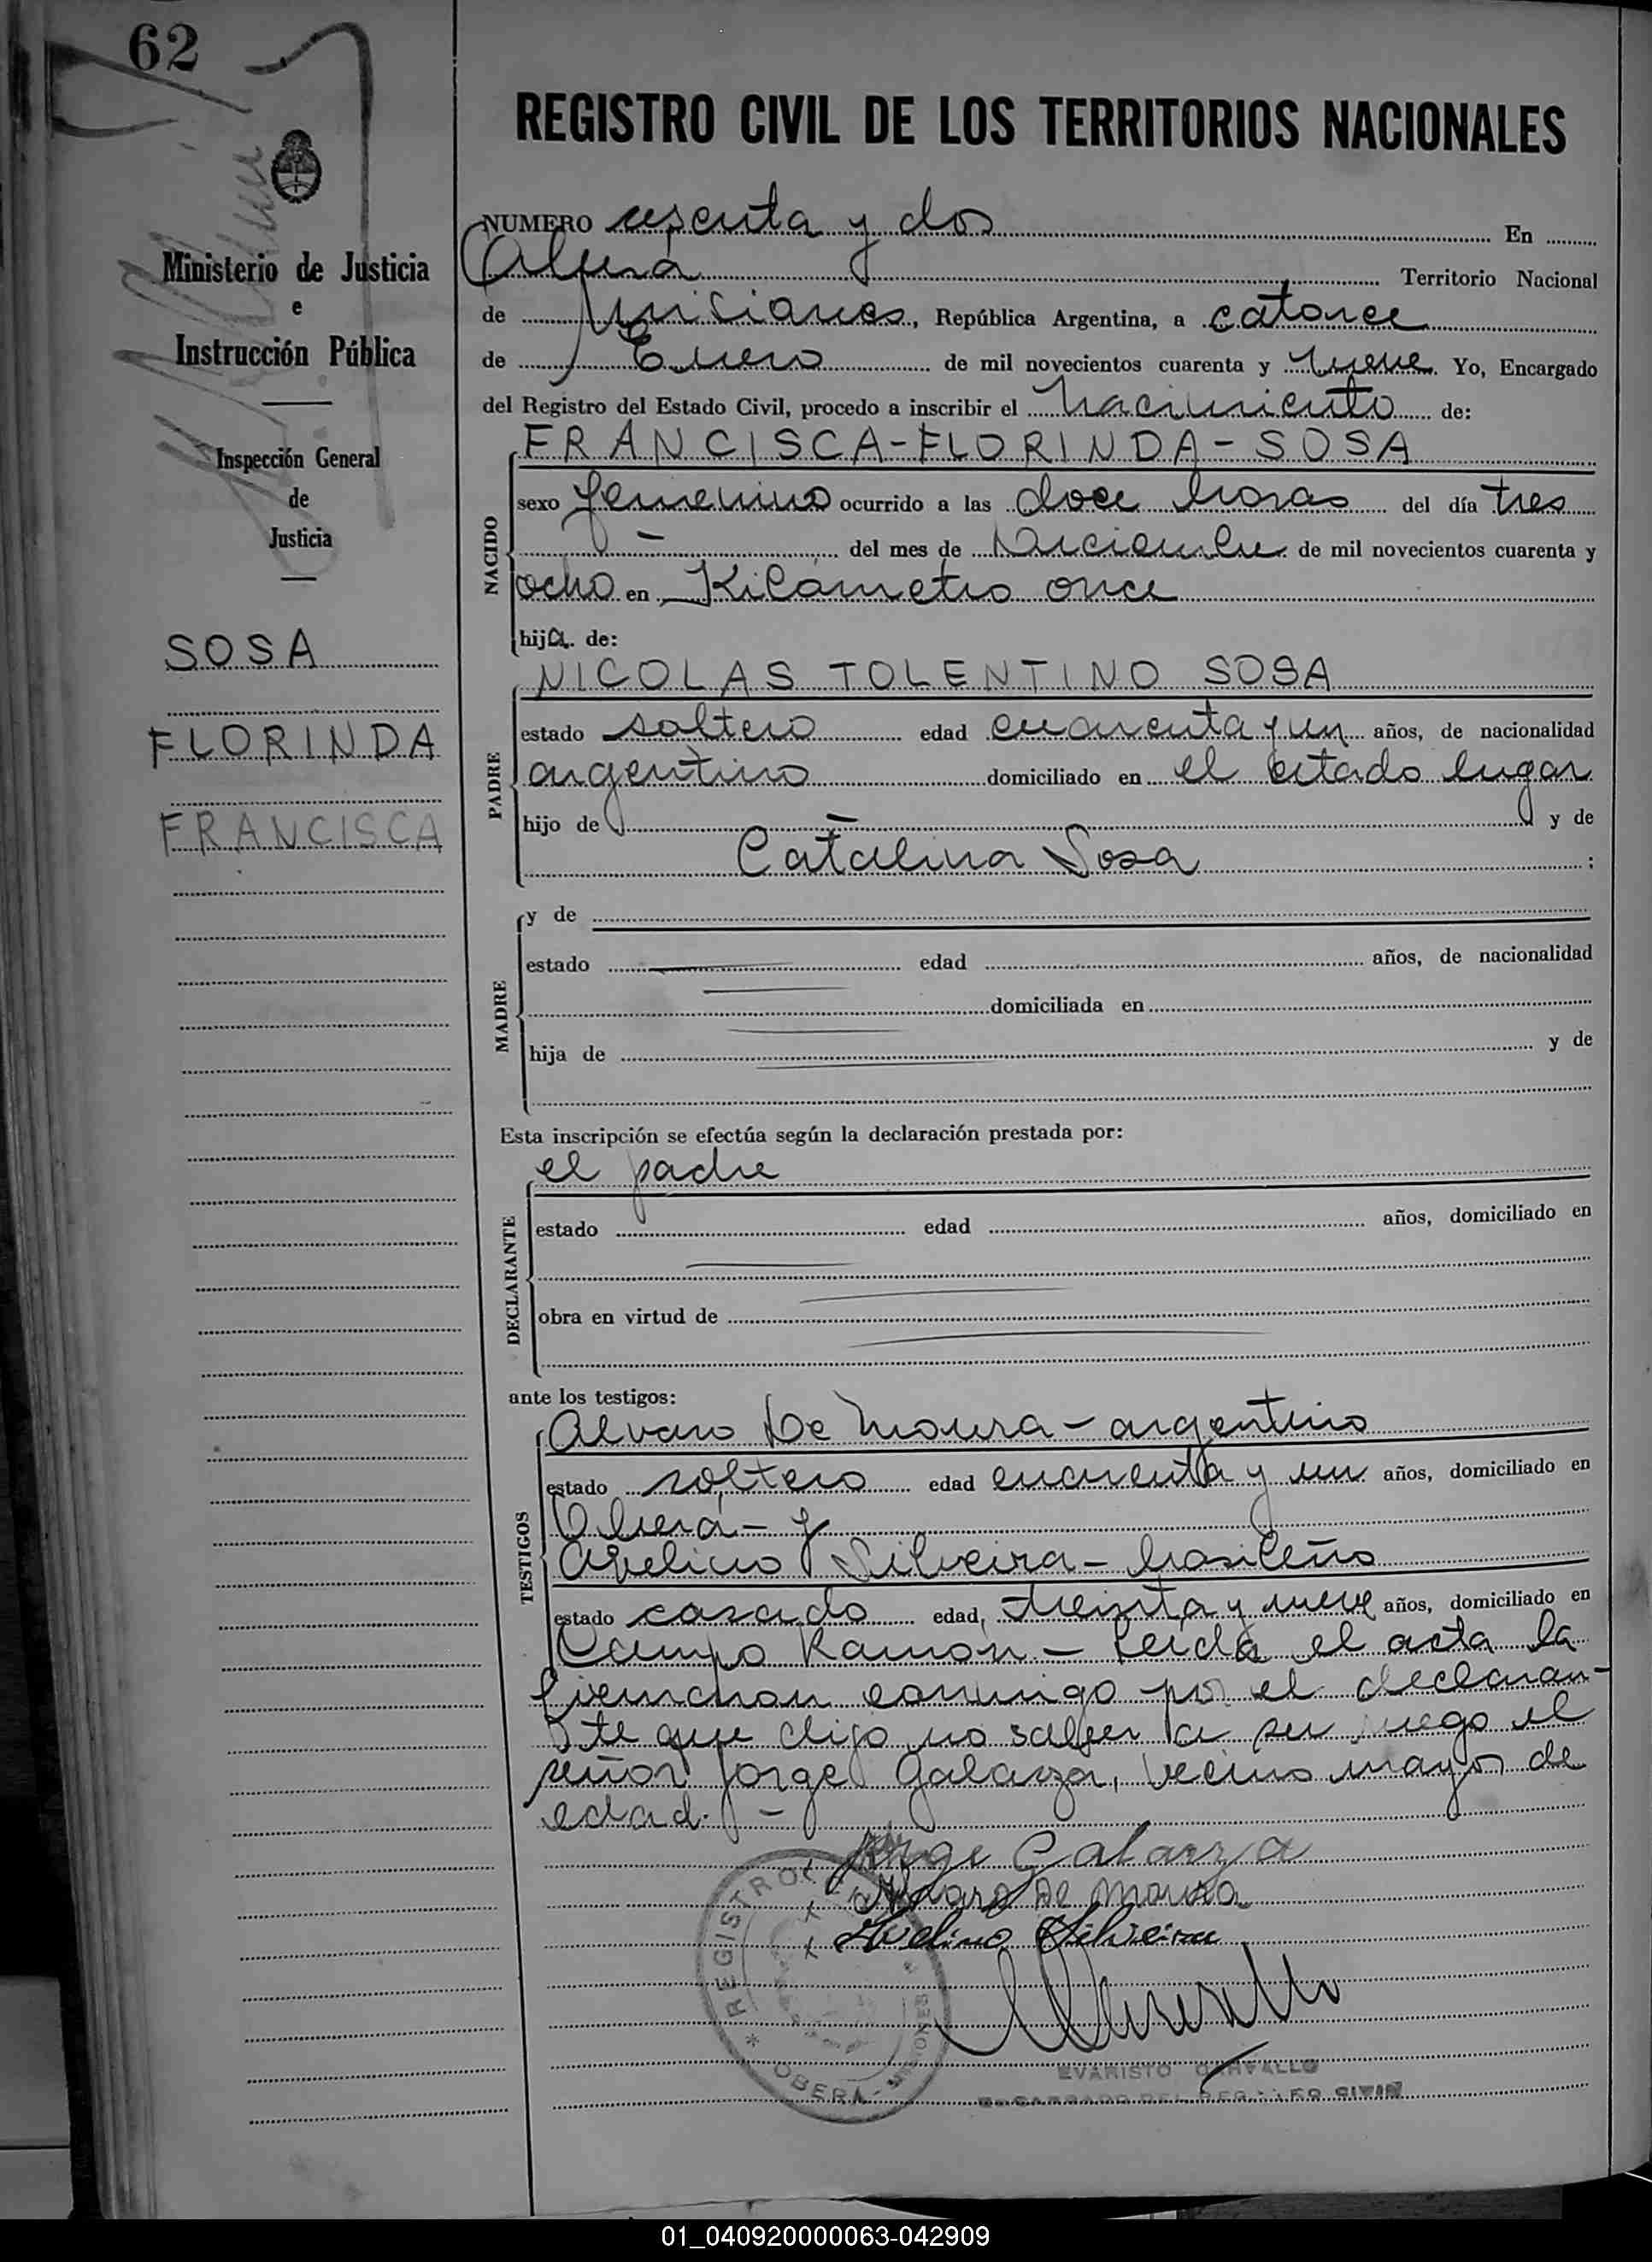 62
REGISTRO CIVIL DE LOS TERRITORIOS NACIONALES
Ministerio de Justicia
e
Instrucción Pública
Inspección General
de
Justicia
SOSA
FLORINDA
FRANCISCA
NUMERO sesenta y dos En
Oberá Territorio Nacional
de Misiones, República Argentina, a catorce
de Enero de mil novecientos cuarenta y nueve. Yo, Encargado
del Registro del Estado Civil, procedo a inscribir el nacimiento de:
NACIDO
FRANCISCA-FLORINDA-SOSA
sexo femenino ocurrido a las doce horas del día tres
- del mes de Diciembre de mil novecientos cuarenta y
ocho en Kilómetro once
hija. de:
PADRE
NICOLAS TOLENTINO SOSA
estado soltero edad cuarenta y un años, de nacionalidad
argentino domiciliado en el citado lugar
hijo de - y de
Catalina Sosa ;
MADRE
y de
estado edad años, de nacionalidad
domiciliada en
hija de y de
Esta inscripción se efectúa según la declaración prestada por:
DECLARANTE
el padre
estado edad años, domiciliado en
obra en virtud de
ante los testigos:
TESTIGOS
Alvaro De Moura - argentino
estado soltero edad cuarenta y un años, domiciliado en
Oberá - y
Avelino Silveira - brasileño
estado casado edad, treinta y nueve años, domiciliado en
Campo Ramón - Leída el acta la
firmaron conmigo por el declaran-
te que dijo no saber a su ruego el
señor Jorge Galarza, vecino mayor de
edad. -
Jorge Galarza
Alvaro De Moura
Avelino Silveira
REGISTRO
OBERÁ - MISIONES
EVARISTO CARVALLO
ENCARGADO DEL REGISTRO CIVIL
01_040920000063-042909